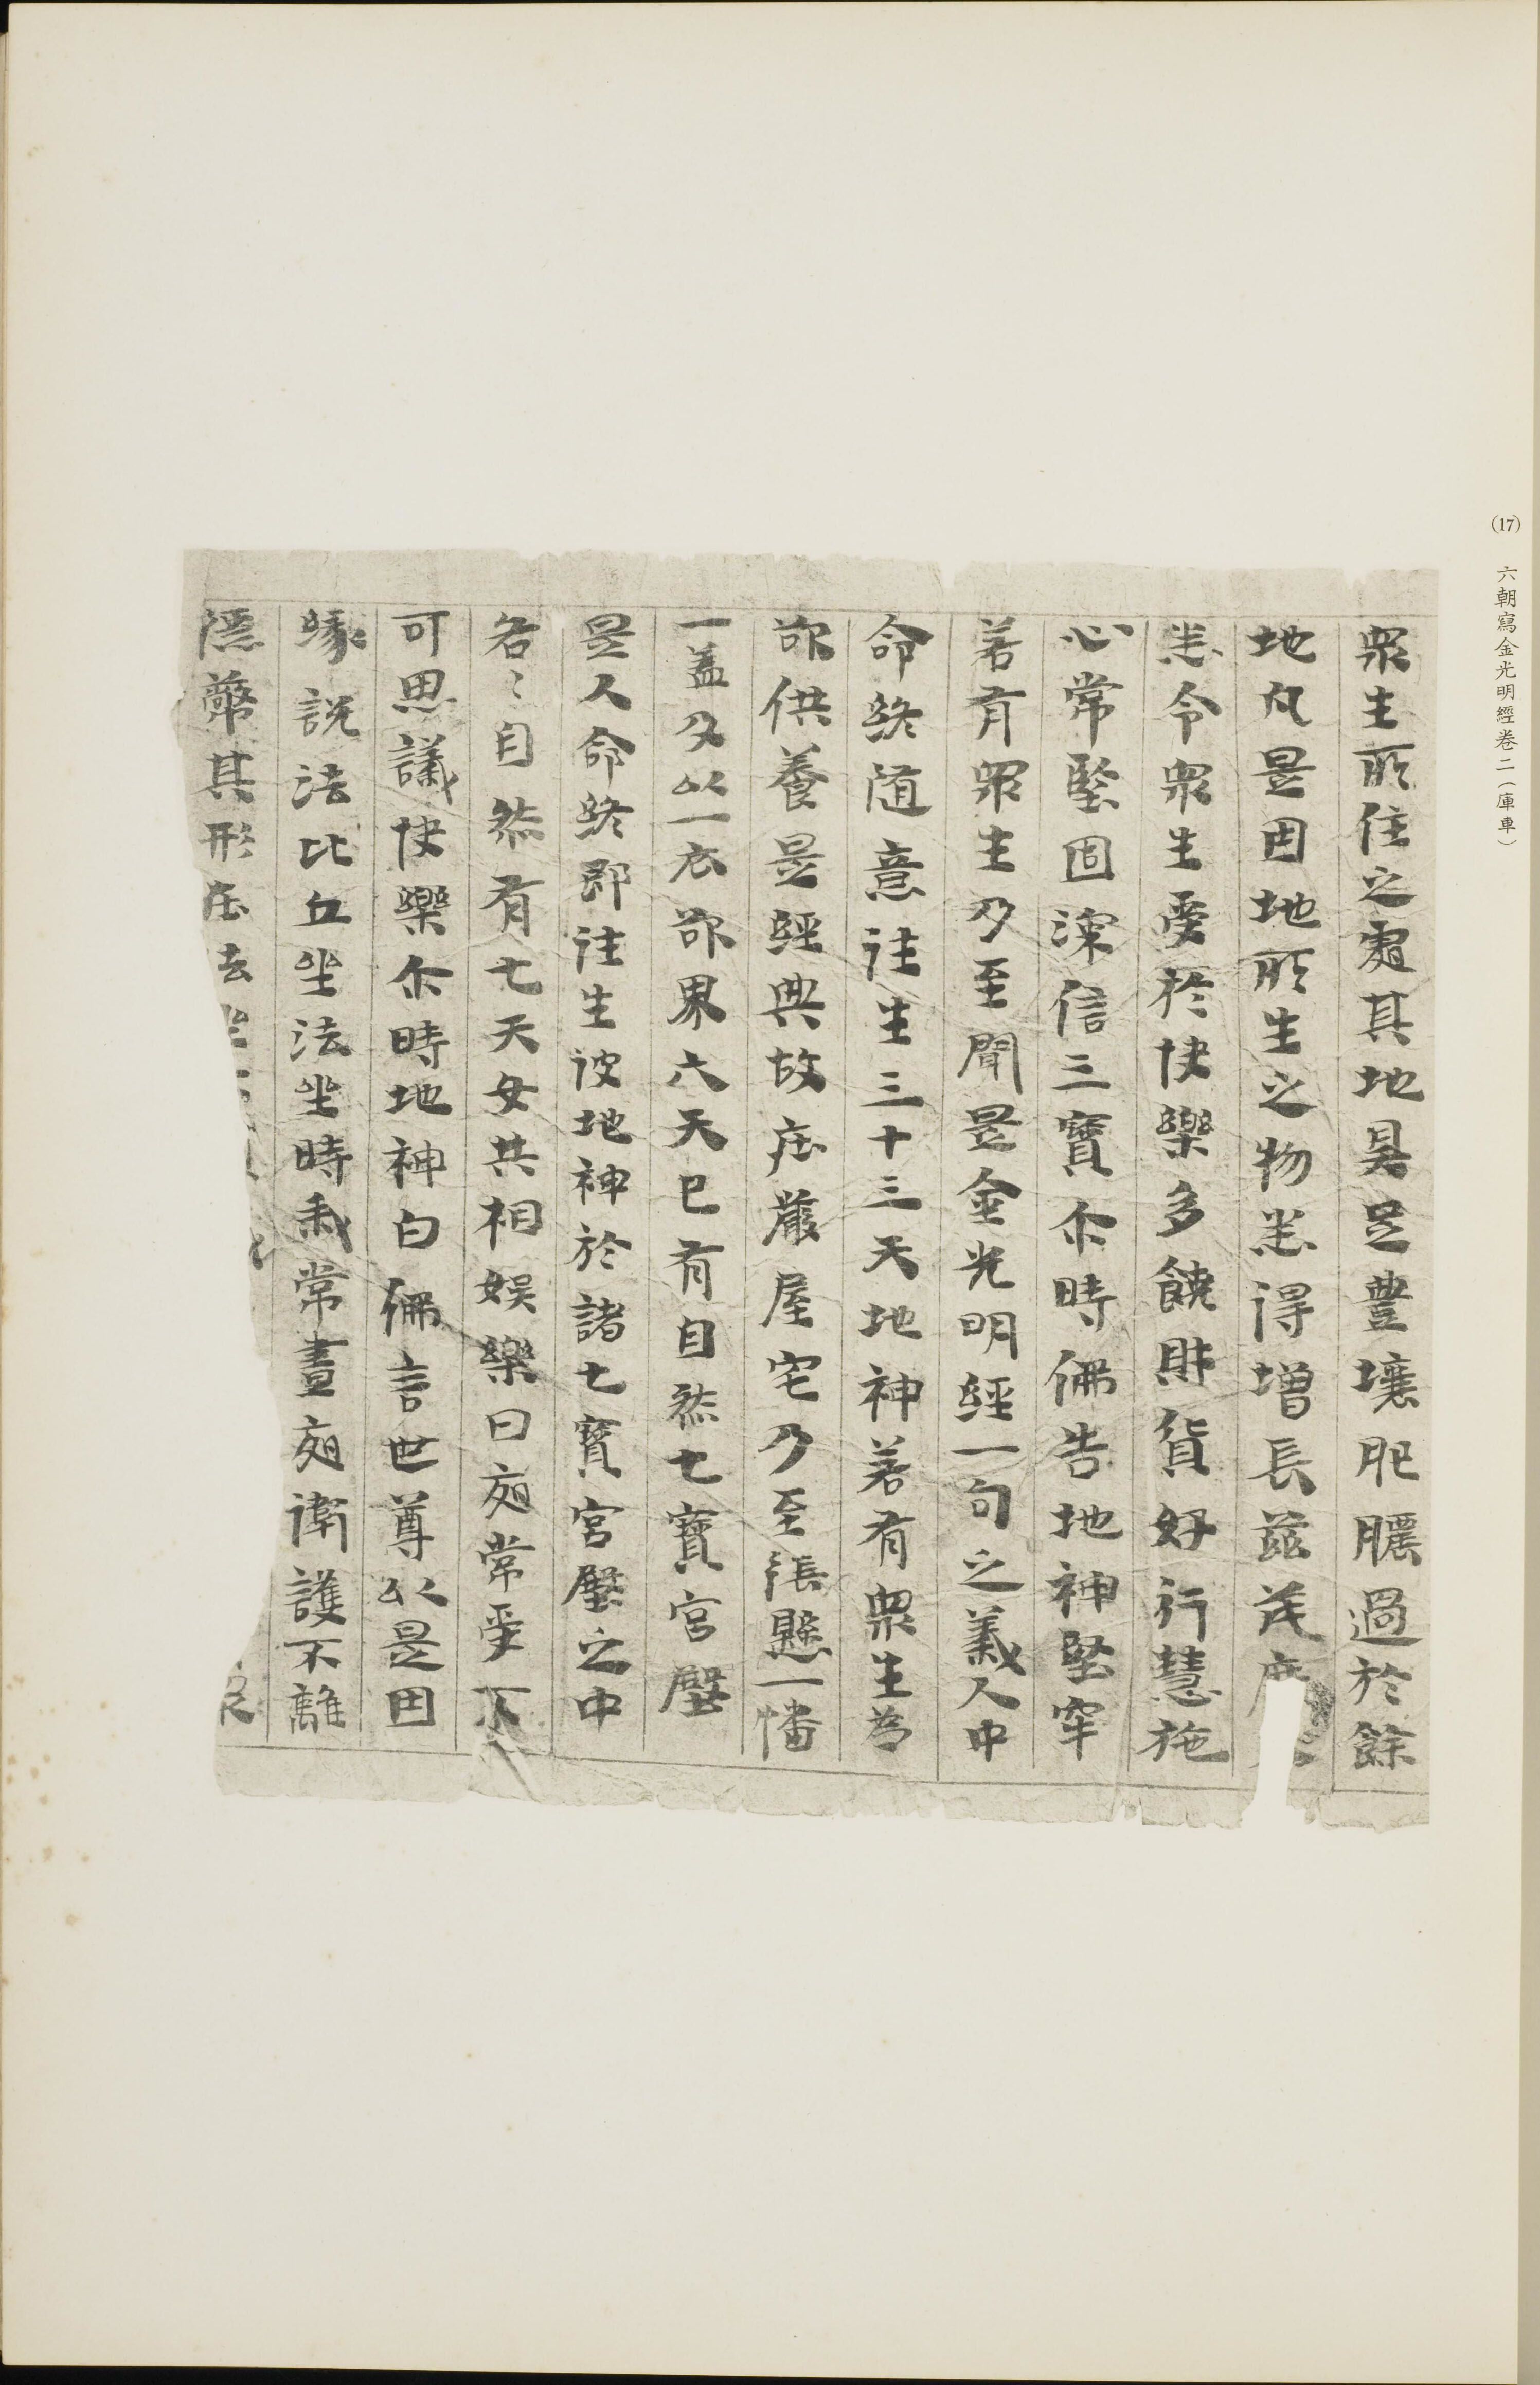 (17) 六朝寫金光明經卷二(庫車)
衆生所住之處其地具足豐壤肥膿過於餘
地凡是因地所生之物悉得增長滋茂
悉令衆生受於快樂多饒財貨好行慧施
心常堅固深信三寶尒時佛告地神堅牢
若有衆生乃至聞是金光明經一句之義人中
命終随意往生三十三天地神若有衆生為
欲供養是經典故庄嚴屋宅乃至張懸一幡
一盖及以一衣欲界六天已有自然七寶宮殿
是人命終即往生彼地神於諸七寶宮殿之中
各〻自然有七天女共相娛樂日夜常受不
可思議快樂尒時地神白佛言世尊以是因
緣說法比丘坐法坐時我常晝夜衛護不離
隱蔽其形在法坐